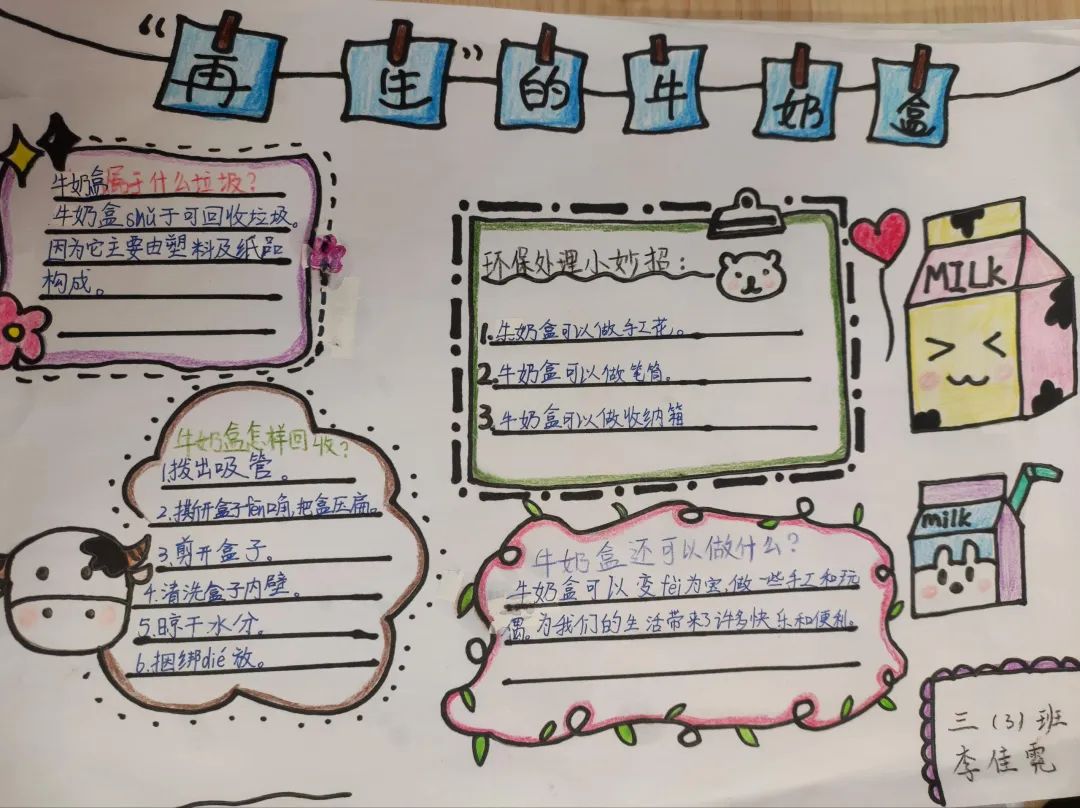 “再生”的牛奶盒
牛奶盒属于什么垃圾?
牛奶盒shǔ于可回收垃圾。
因为它主要由塑料及纸品
构成。
环保处理小妙招:
1.牛奶盒可以做手工花。
2.牛奶盒可以做笔筒。
3.牛奶盒可以做收纳箱
MILK
牛奶盒怎样回收?
1.拨出吸管。
2.撕开盒子fēn口角,把盒压扁。
3.剪开盒子。
4.清洗盒子内壁。
5.晾干水分。
6.捆绑dié放。
牛奶盒还可以做什么?
牛奶盒可以变fèi为宝,做一些手工和玩
偶。为我们的生活带来了许多快乐和便利。
milk
三(3)班
李佳霓